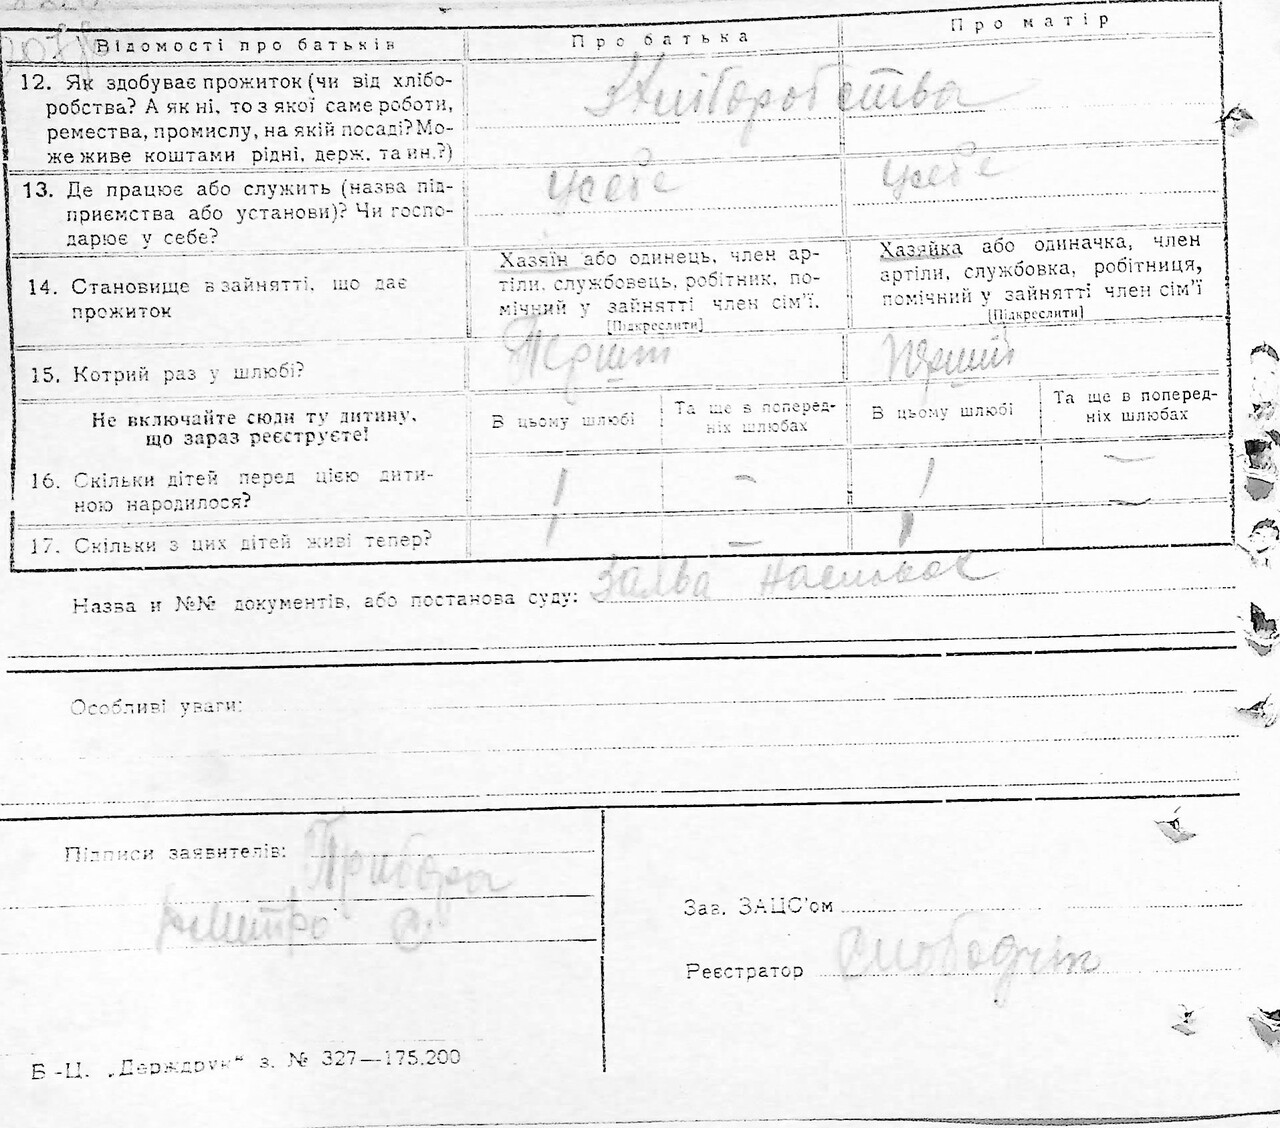 Відомості про батьків
Про батька
Про матір
12. Як здобуває прожиток (чи від хлібо-
робства? А як ні, то з якої саме роботи,
ремества, промислу, на якій посаді? Мо-
же живе коштами рідні, держ. та ин.?)
З хліборобства
13. Де працює або служить (назва під-
приємства або установи)? Чи госпо-
дарює у себе?
у себе
у себе
14. Становище в зайнятті, що дає
прожиток
Хазяїн або одинець, член ар-
тіли, службовець, робітник, по-
мічний у зайнятті член сім'ї.
[Підкреслити]
Хазяйка або одиначка, член
артіли, службовка, робітниця,
помічний у зайнятті член сім'ї
[Підкреслити]
15. Котрий раз у шлюбі?
Перший
Перший
Не включайте сюди ту дитину,
що зараз реєструєте!
В цьому шлюбі
Та ще в поперед-
ніх шлюбах
В цьому шлюбі
Та ще в поперед-
ніх шлюбах
16. Скільки дітей перед цією дити-
ною народилося?
1 – 1 –
17. Скільки з цих дітей живі тепер?
1 – 1 –
Назва и №№ документів, або постанова суду: Заява
Особливі уваги:
Підписи заявителів: Прибора
Дмитро С.
Зав. ЗАЦС'ом
Реєстратор
Б.-Ц. „Держдрук“ з. № 327—175.200